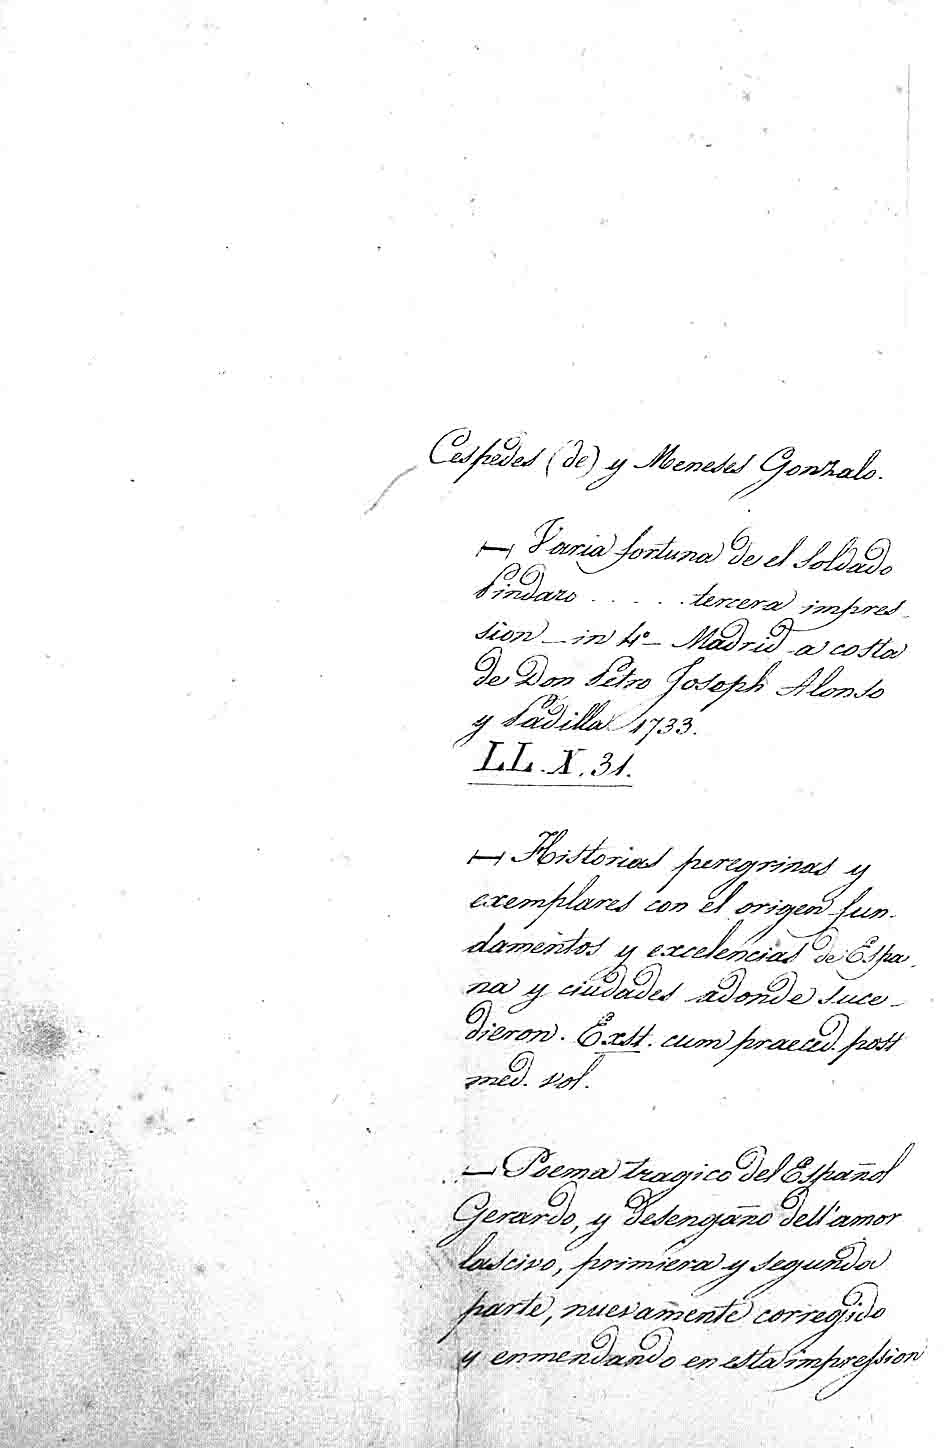 Cespedes (de) y Meneses Gonzalo.
— Varia fortuna de el soldado
Pindaro . . . . . tercera impres-
sion — in 4° — Madrid a costa
de Don Petro Joseph Alonso
y Padilla 1733.
LL. X. 31.
— Historias peregrinas y
exemplares con el origen fun-
damentos y excelencias de Espa-
na y ciudades adonde suce-
dieron. Exst. cum praeced. post
med. vol.
— Poema tragico del Español
Gerardo, y desengaño dell'amor
lascivo, primiera y segunda
parte, nuevamente corregido
y enmendando en esta impression